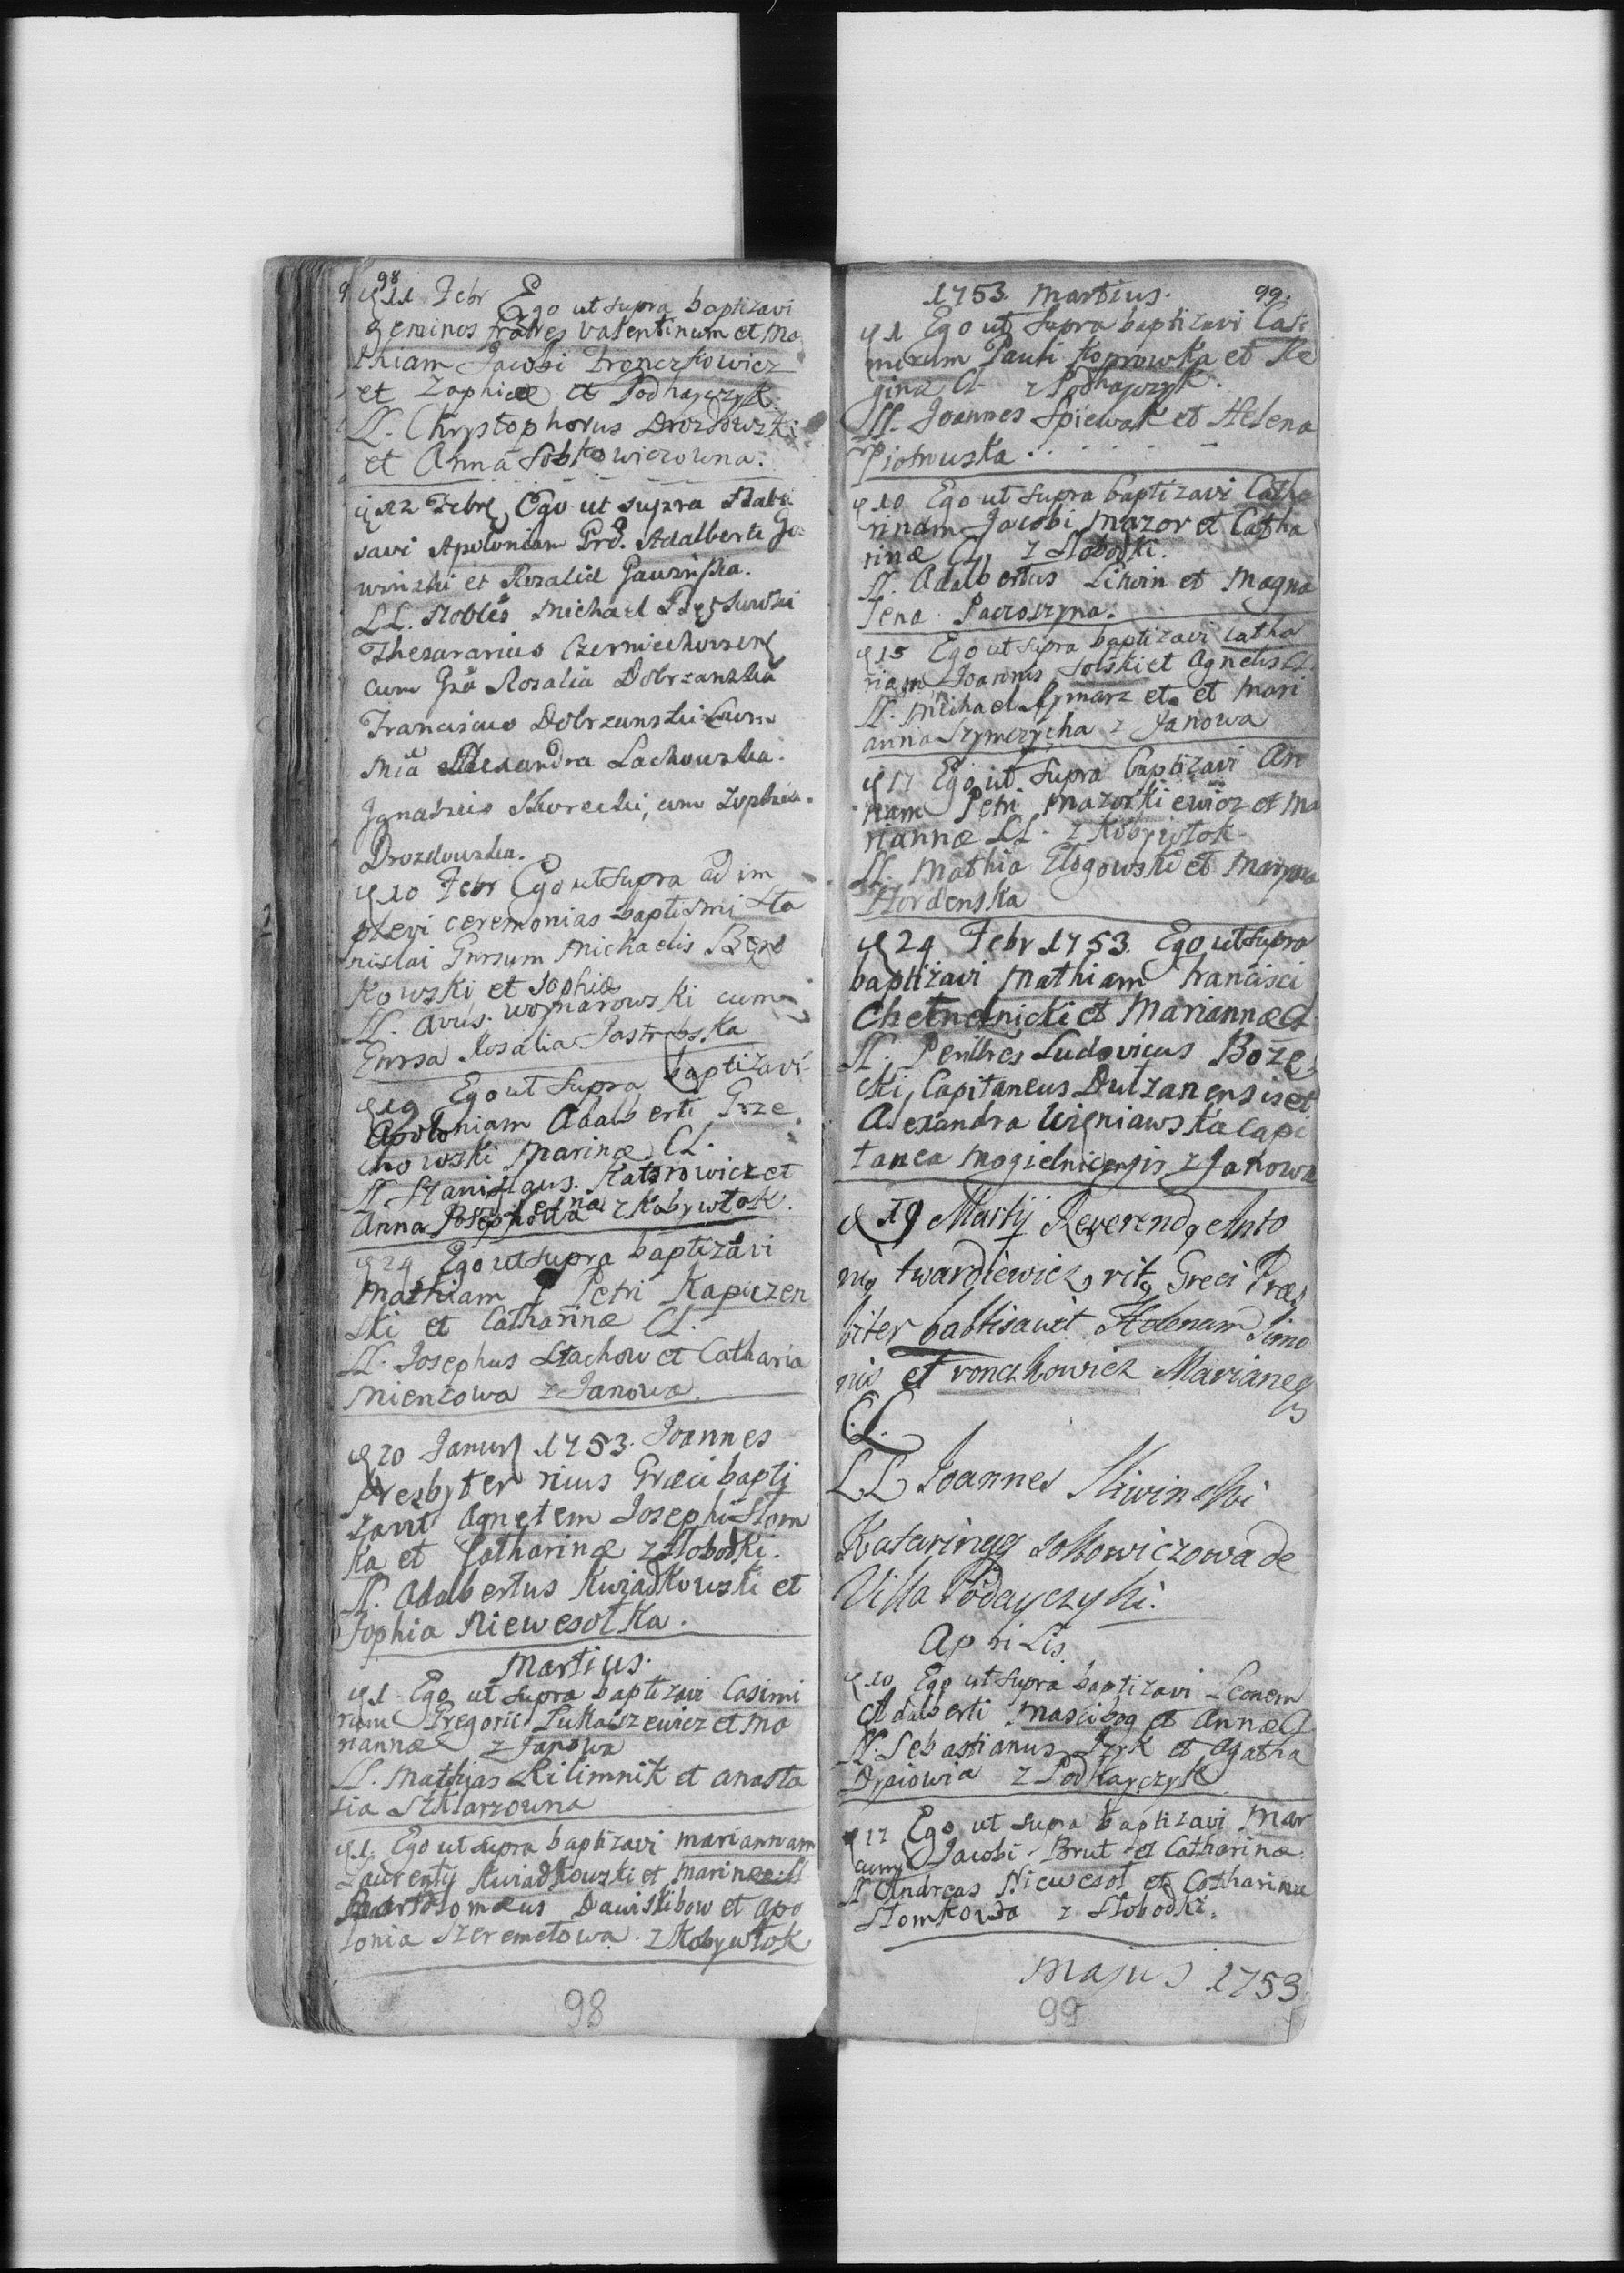 98
11 Febr Ego ut supra baptizavi
geminos fratres Valentinum et Ma
thiam Jacobi Fronczkowicz
et Zophiæ et Podhayczyk.
LL. Chrystophorus Drozdowski
et Anna Sobkowiczowna.
12 Febr Ego ut supra Babti
savi Apoloniam Adalberti
et Rozalia
LL. Nobles Michael
Thesararius
cum Rosalia Dobrzanska
Franciscus Dobrzanski cum
Alexandra Lachowska.
Ignatius cum Zophia
Drozdowska.
10 Febr Ego ut supra ad im
plevi ceremonias baptismi Sta
nislai Michaelis
kowski et Sophiæ
LL. woynarowski cum
Rosalia Jastrebska
19 Ego ut supra baptizavi
Apoloniam Adalberti Grze
chowski Marinæ CL.
LL Stanislaus et
Anna z Kobywłok.
24 Ego ut supra baptizavi
Mathiam Petri Kapiczen
ski et Catharinæ CL.
LL. Josephus Stachow et Catharia
Miencowa z Janowa.
20 Januar 1753. Joannes
Presbyter rius Græci bapti
zavit Agnetem Josephi Slom
ka et Catharinæ z Slobodki.
LL. Adalbertus Kwiadkowski et
Sophia Niewesołka.
Martius.
1 Ego ut supra baptizavi Casimi
rum Gregorii Lukaszewicz et Ma
riannæ z Janowa
LL. Mathyas Kilimnik et Anasta
sia Szklarzowna
1 Ego ut supra baptizavi Mariannam
Laurentij Kwiadkowski et Marinæ
Bartolomæus et Apo
lonia Szeremetowa z Kobywłok
98
1753 Martius. 99.
1 Ego ut supra baptizavi Casi
mirum Pauli Koprowka et Re
ginæ CL z Podhayczyk.
LL. Joannes Spiewak et Helena
Piotruszka
10 Ego ut supra baptizavi Catha
rinam Jacobi Mazor et Catha
rinæ CL z Slobodki.
LL. Adalbertus Litwin et Magna
lena
15 Ego ut supra baptizavi Catha
riam Joannis Solski et Agnetis CL
LL. Michael Rymarz et et Mari
anna Szymczycha z Janowa
17 Ego ut supra baptizavi An
nam Petri Mazorkiewicz et Ma
riannæ LL. z Kobywłok
LL. Mathia Głogowski et Maryana
Hordenska
24 Febr 1753. Ego ut supra
baptizavi Mathiam Francisci
Chetnelnicki et Mariannæ CL
LL. Perillres Ludovicus Boze
cki Capitaneus Dulzanensis et
Alexandra Urzeniawska Capi
tanea Mogielnicensis z Janowa
19 Martij Reverend Anto
ni twardiewicz rit Greci Præs
biter babtisavit Helenam Simo
nis et ronczkowicz Mariane
CL.
LL Joannes Sliwinski
Katarinæ sobkowiczowa de
Villa Podayczyki.
Aprilis.
10 Ego ut supra baptizavi Leonem
Adalberti Mascibog et Annæ CL
LL. Sebastianus Szyk et Agatha
z Podhayczyk
17 Ego ut supra baptizavi Mar
cum Jacobi Brut et Catharinæ.
LL Andreas Niewesoł et Catharina
Slomkowa z Slobodki.
Majus 1753
99